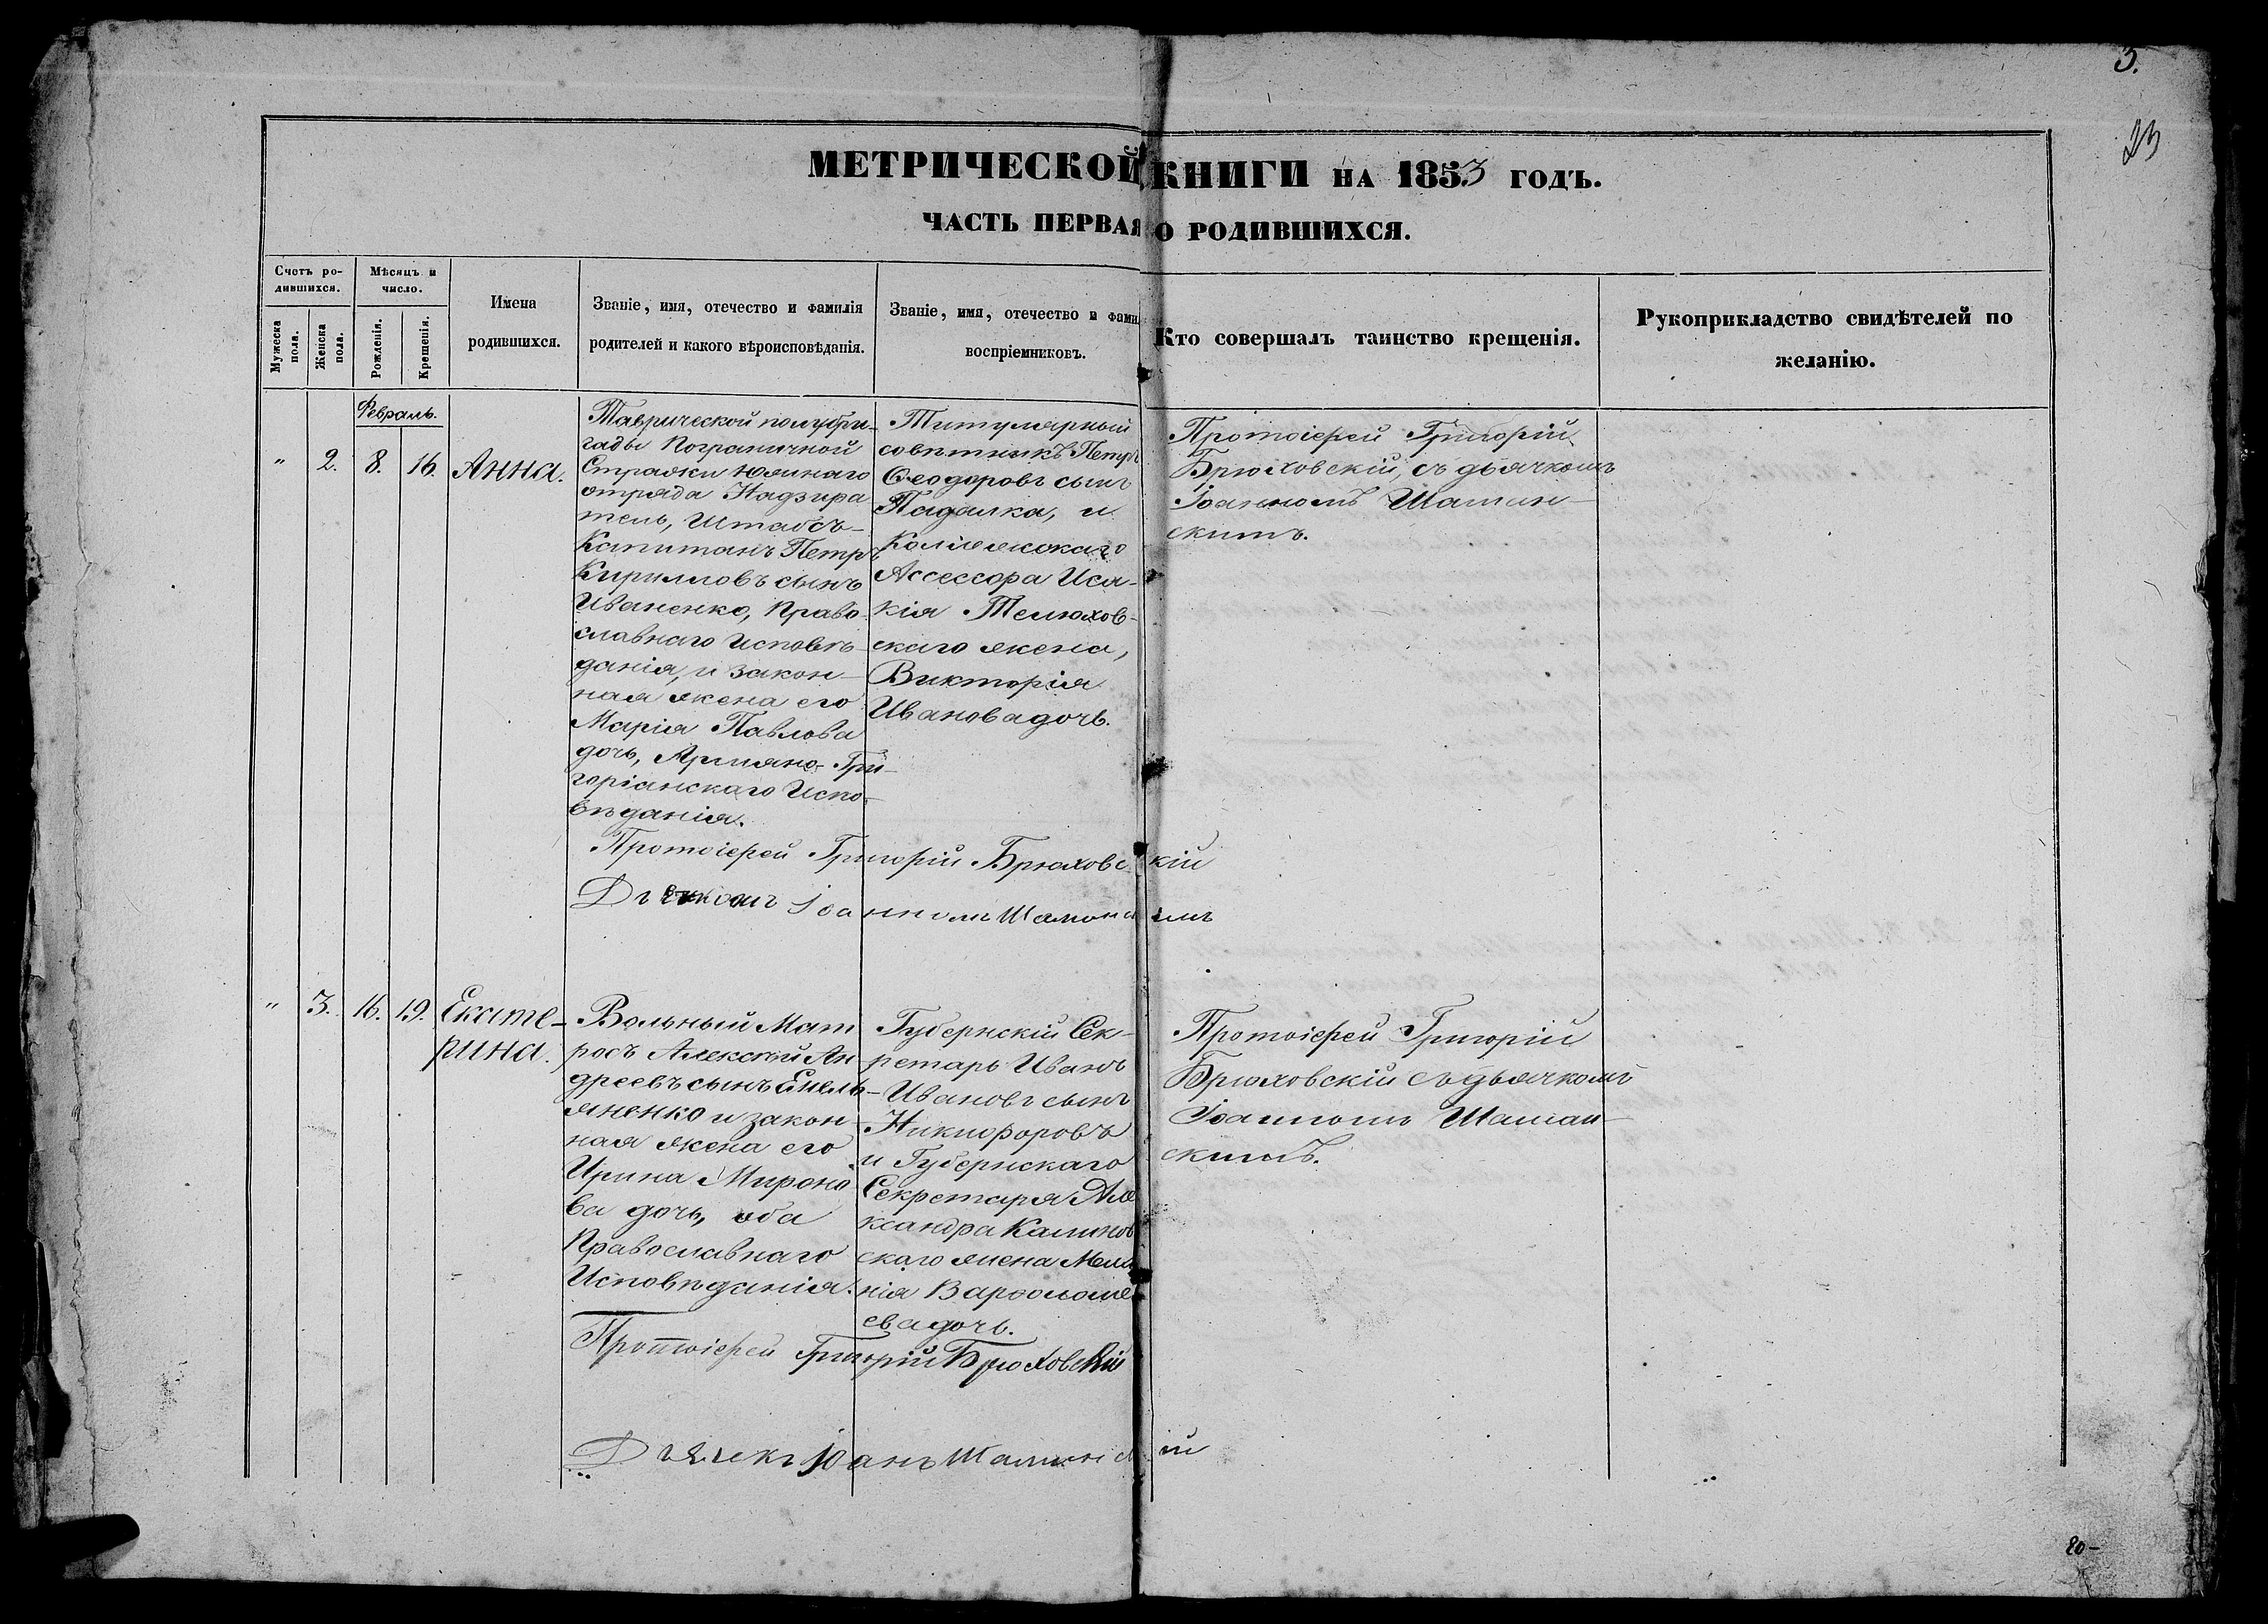 3.
23
МЕТРИЧЕСКОЙ КНИГИ НА 1853 ГОДЪ.
ЧАСТЬ ПЕРВАЯ О РОДИВШИХСЯ.
Счетъ ро-
дившихся.
Мѣсяцъ и
число.
Мужеска
пола.
Женска
пола.
Рожденія.
Крещенія.
Имена
родившихся.
Званіе, имя, отечество и фамилія
родителей и какого вѣроисповѣданія.
Званіе, имя, отечество и фами
воспріемниковъ.
Кто совершалъ таинство крещенія.
Рукоприкладство свидѣтелей по
желанію.
Февраль.
" 2. 8. 16. Анна.
Таврической полубри-
гады Пограничной
Стражи Южнаго
отряда Надзира
тель, Штабсъ-
Капитанъ Петръ
Кирилловъ сынъ
Иваненко, Право-
славнаго исповѣ-
данія, и закон-
ная жена его
Марія Павлова
дочь, Армяно-Гри-
горіанскаго Испо-
вѣданія.
Титулярный
совѣтникъ Петръ
Ѳеодоровъ сынъ
Падалка, и
Коллежскаго
Ассессора Иса-
кія Телюхов-
скаго жена,
Викторія
Иванова дочь.
Протоіерей Григорій
Брюховскій, съ дьячкомъ
Іоанномъ Шаман-
скимъ.
Протоіерей Григорій Брюховскій
" 3. 16. 19. Екате-
рина.
Вольный Мат
росъ Алексѣй Ан
дреевъ сынъ Емель-
яненко и закон-
ная жена его
Ирина Мироно
ва дочь, оба
Православнаго
Исповѣданія.
Губернскій Сек-
ретарь Иванъ
Ивановъ сынъ
Никифоровъ
и Губернскаго
Секретаря Але
ксандра Калинов
скаго жена Мела
нія Варѳоломе
ева дочь.
Протоіерей Григорій
Брюховскій съ дьячкомъ
Іоанномъ Шаман-
скимъ.
Протоіерей Григорій Брюховскій